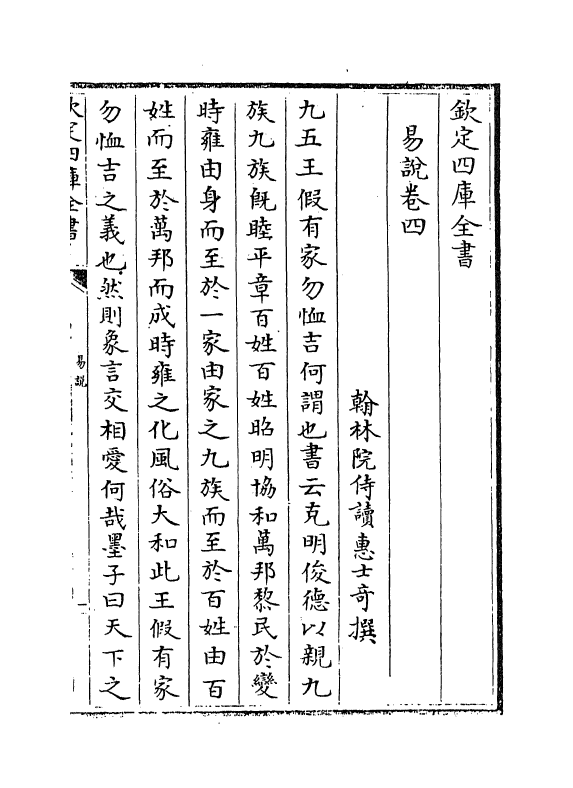 欽定四庫全書
易說卷四
翰林院侍讀惠士竒撰
九五王假有家勿恤吉何謂也書云克明俊德以親九
族九族旣睦平章百姓百姓昭明協和萬邦黎民於變
時雍由身而至於一家由家之九族而至於百姓由百
姓而至於萬邦而成時雍之化風俗大和此王假有家
勿恤吉之義也然則象言交相愛何哉墨子曰天下之
欽定四庫全書
易說